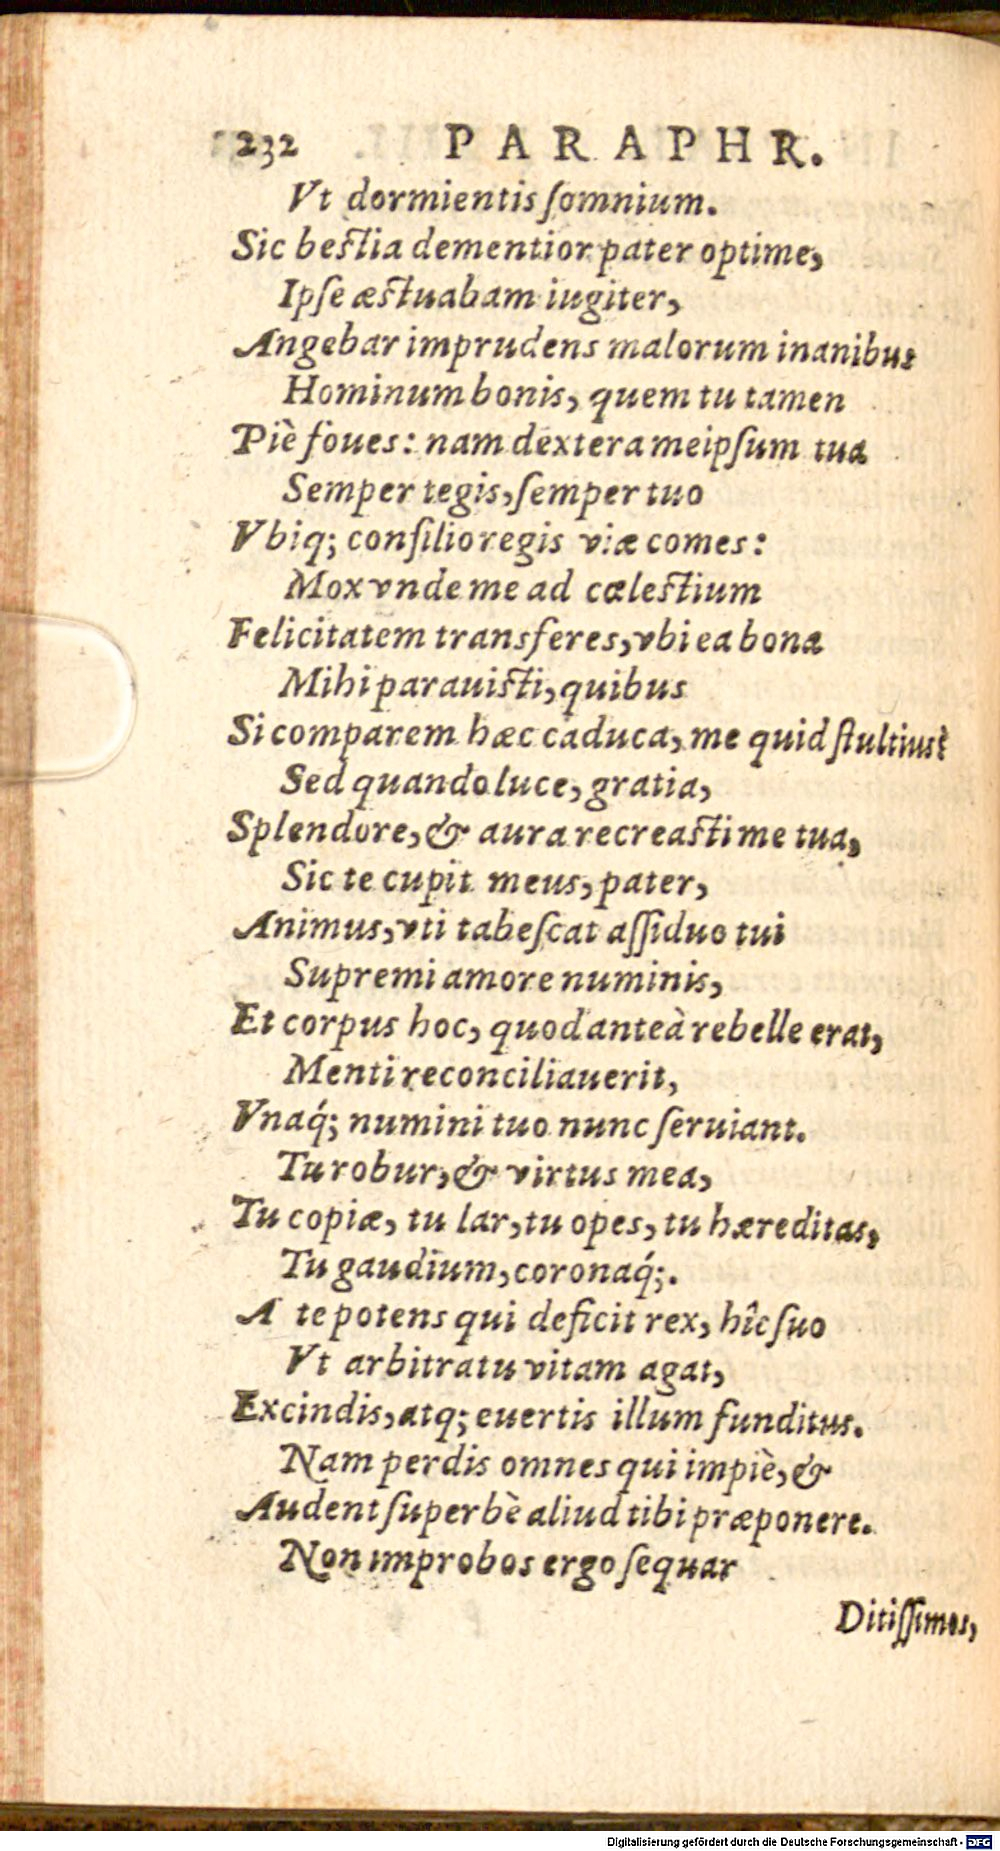 232 PARAPHR.
Vt dormientis ſomnium.
Sic beſtia dementior pater optime,
Ipſe æſtuabam iugiter,
Angebar imprudens malorum inanibus
Hominum bonis, quem tu tamen
Piè foues: nam dextera meipſum tua
Semper tegis, ſemper tuo
Vbiq; conſilio regis viæ comes:
Mox vnde me ad cœleſtium
Felicitatem transferes, vbi ea bona
Mihi parauiſti, quibus
Si comparem hæc caduca, me quid ſtultius?
Sed quando luce, gratia,
Splendore, & aura recreaſti me tua,
Sic te cupit meus, pater,
Animus, vti tabeſcat aſſiduo tui
Supremi amore numinis,
Et corpus hoc, quod anteà rebelle erat,
Menti reconciliauerit,
Vnaq́; numini tuo nunc ſeruiant.
Tu robur, & virtus mea,
Tu copiæ, tu lar, tu opes, tu hæreditas,
Tu gaudium, coronaq́;.
A te potens qui deficit rex, hîc ſuo
Vt arbitratu vitam agat,
Excindis, atq; euertis illum funditus.
Nam perdis omnes qui impiè, &
Audent ſuperbè aliud tibi præponere.
Non improbos ergo ſequar
Ditiſſimos,
Digitalisierung gefördert durch die Deutsche Forschungsgemeinschaft - DFG